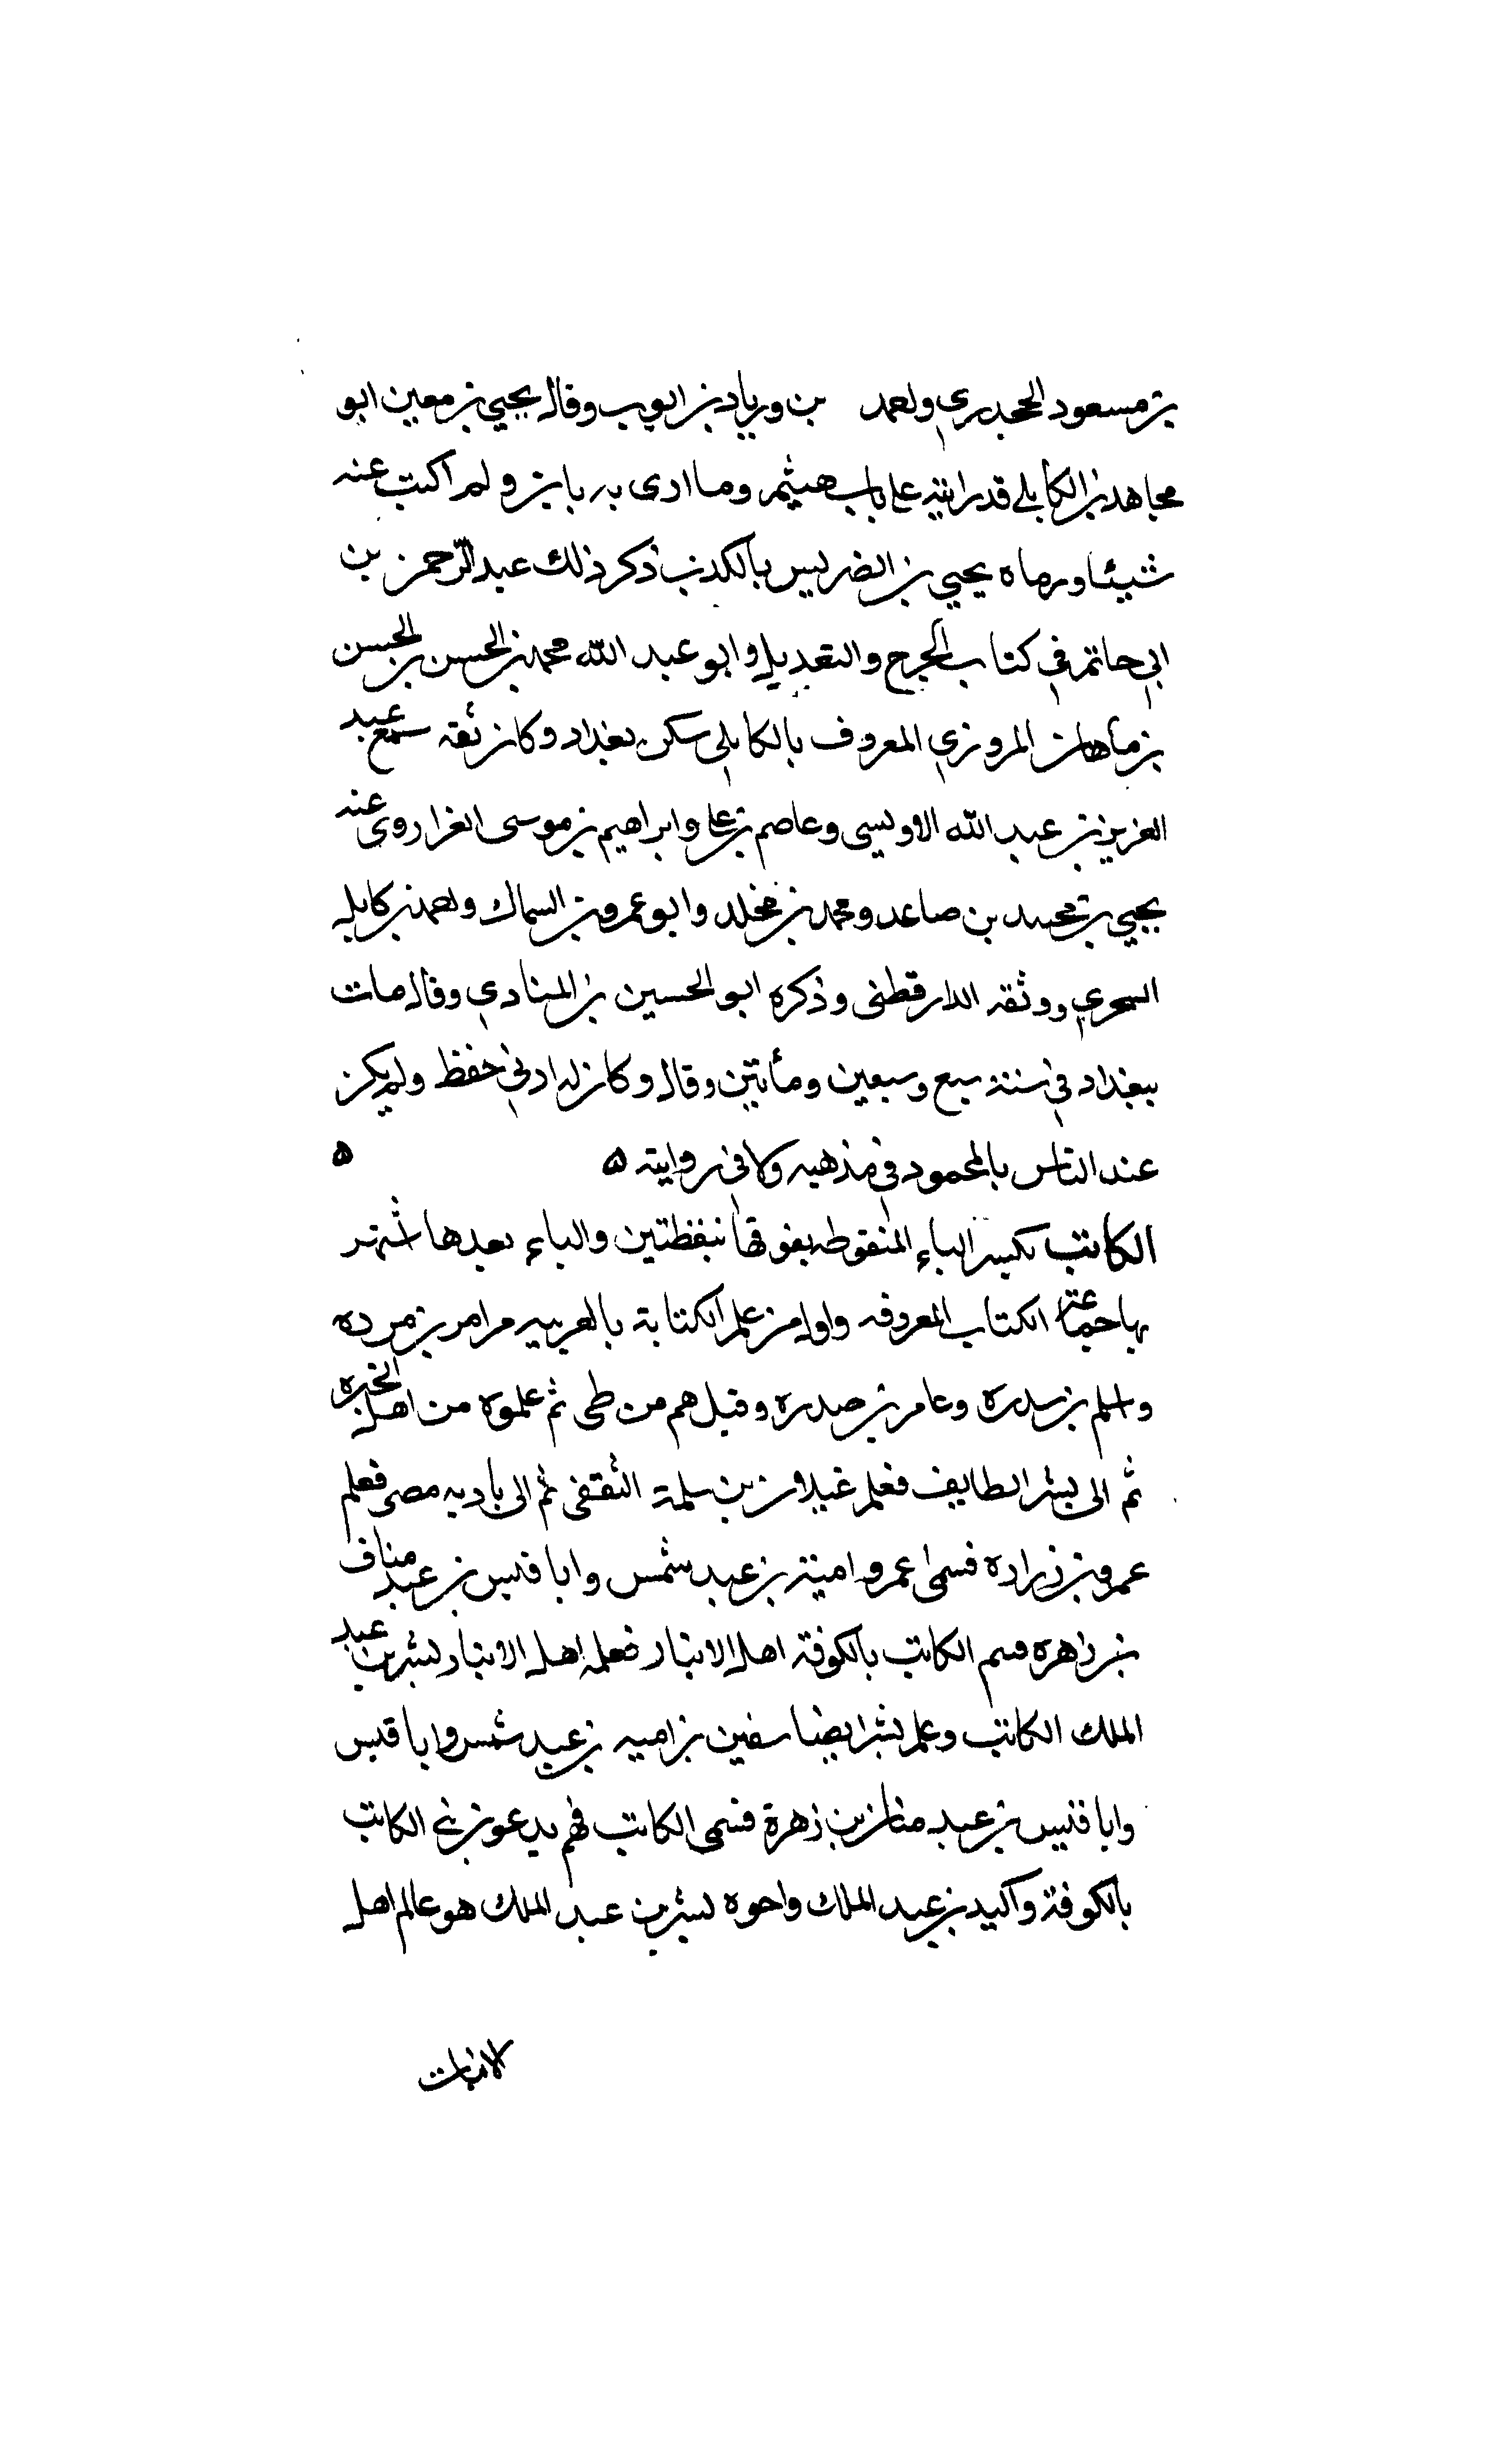 بن مسعود الجحدري واحمد بن وزياد بن ايوب وقال يحيي بن معين ابو
مجاهد بن الكابلي قد رايته علي باب هيثم وما ادى به باس ولم اكتب عنه
شيئا ورماه يحيي بن الضريس بالكذب ذكر ذلك عبد الرحمن بن
ابي حاتم في كتاب الجرح والتعديل وابو عبد الله محمد بن الحسن بن الحسن
بن ماهان المروزي المعروف بالكابلي سكن بغداد وكان ثقه سمع عبد
العزيز بن عبد الله الاويسي وعاصم بن علي وابراهيم بن موسى الفرا روى عنه
يحيي بن محمد بن صاعد ومحمد بن مخلد وابو عمرو بن السماك واحمد بن كامل
السحري ووثقه الدارقطنى وذكره ابو الحسين بن المنادي وقال مات
ببغداد في سنة سبع وسبعين ومأتين وقال وكان له ادني حفظ ولم يكن
عند الناس بالمحمود في مذهبه ولا في روايته ه ه
الكاتب بكسر التاء المنقوطه بفوقها بنقطتين والباء بعدها اشتهر
بها جماعة الكتاب المعروفه واول من علم الكتابة بالعربيه مرامر بن مرده
واسلم بن سدره وعامر بن حدره وقيل هم من طى ثم علموه من اهل الحيره
ثم الى بشر الطايف فعلم غيلان بن سلمة الثقفى ثم الى باديه مصر فعلم
عمرو بن زراده فسمى عمرو امية بن عبد شمس وابا قيس بن عبد مناف
بن زاهره الكاتب بالكوفة اهل الانبار فعلمه اهل الانبار بشر بن عبد
الملك الكاتب وعلم بشر ايضا سفين بن اميه بن عبد شمس وابا قيس
وابا قيس بن عبد مناف بن زهرة فسمى الكاتب فهم يدعون بني الكاتب
بالكوفة واكيد بن عبد الملك واخوه بشر بن عبد الملك هو عالم اهل